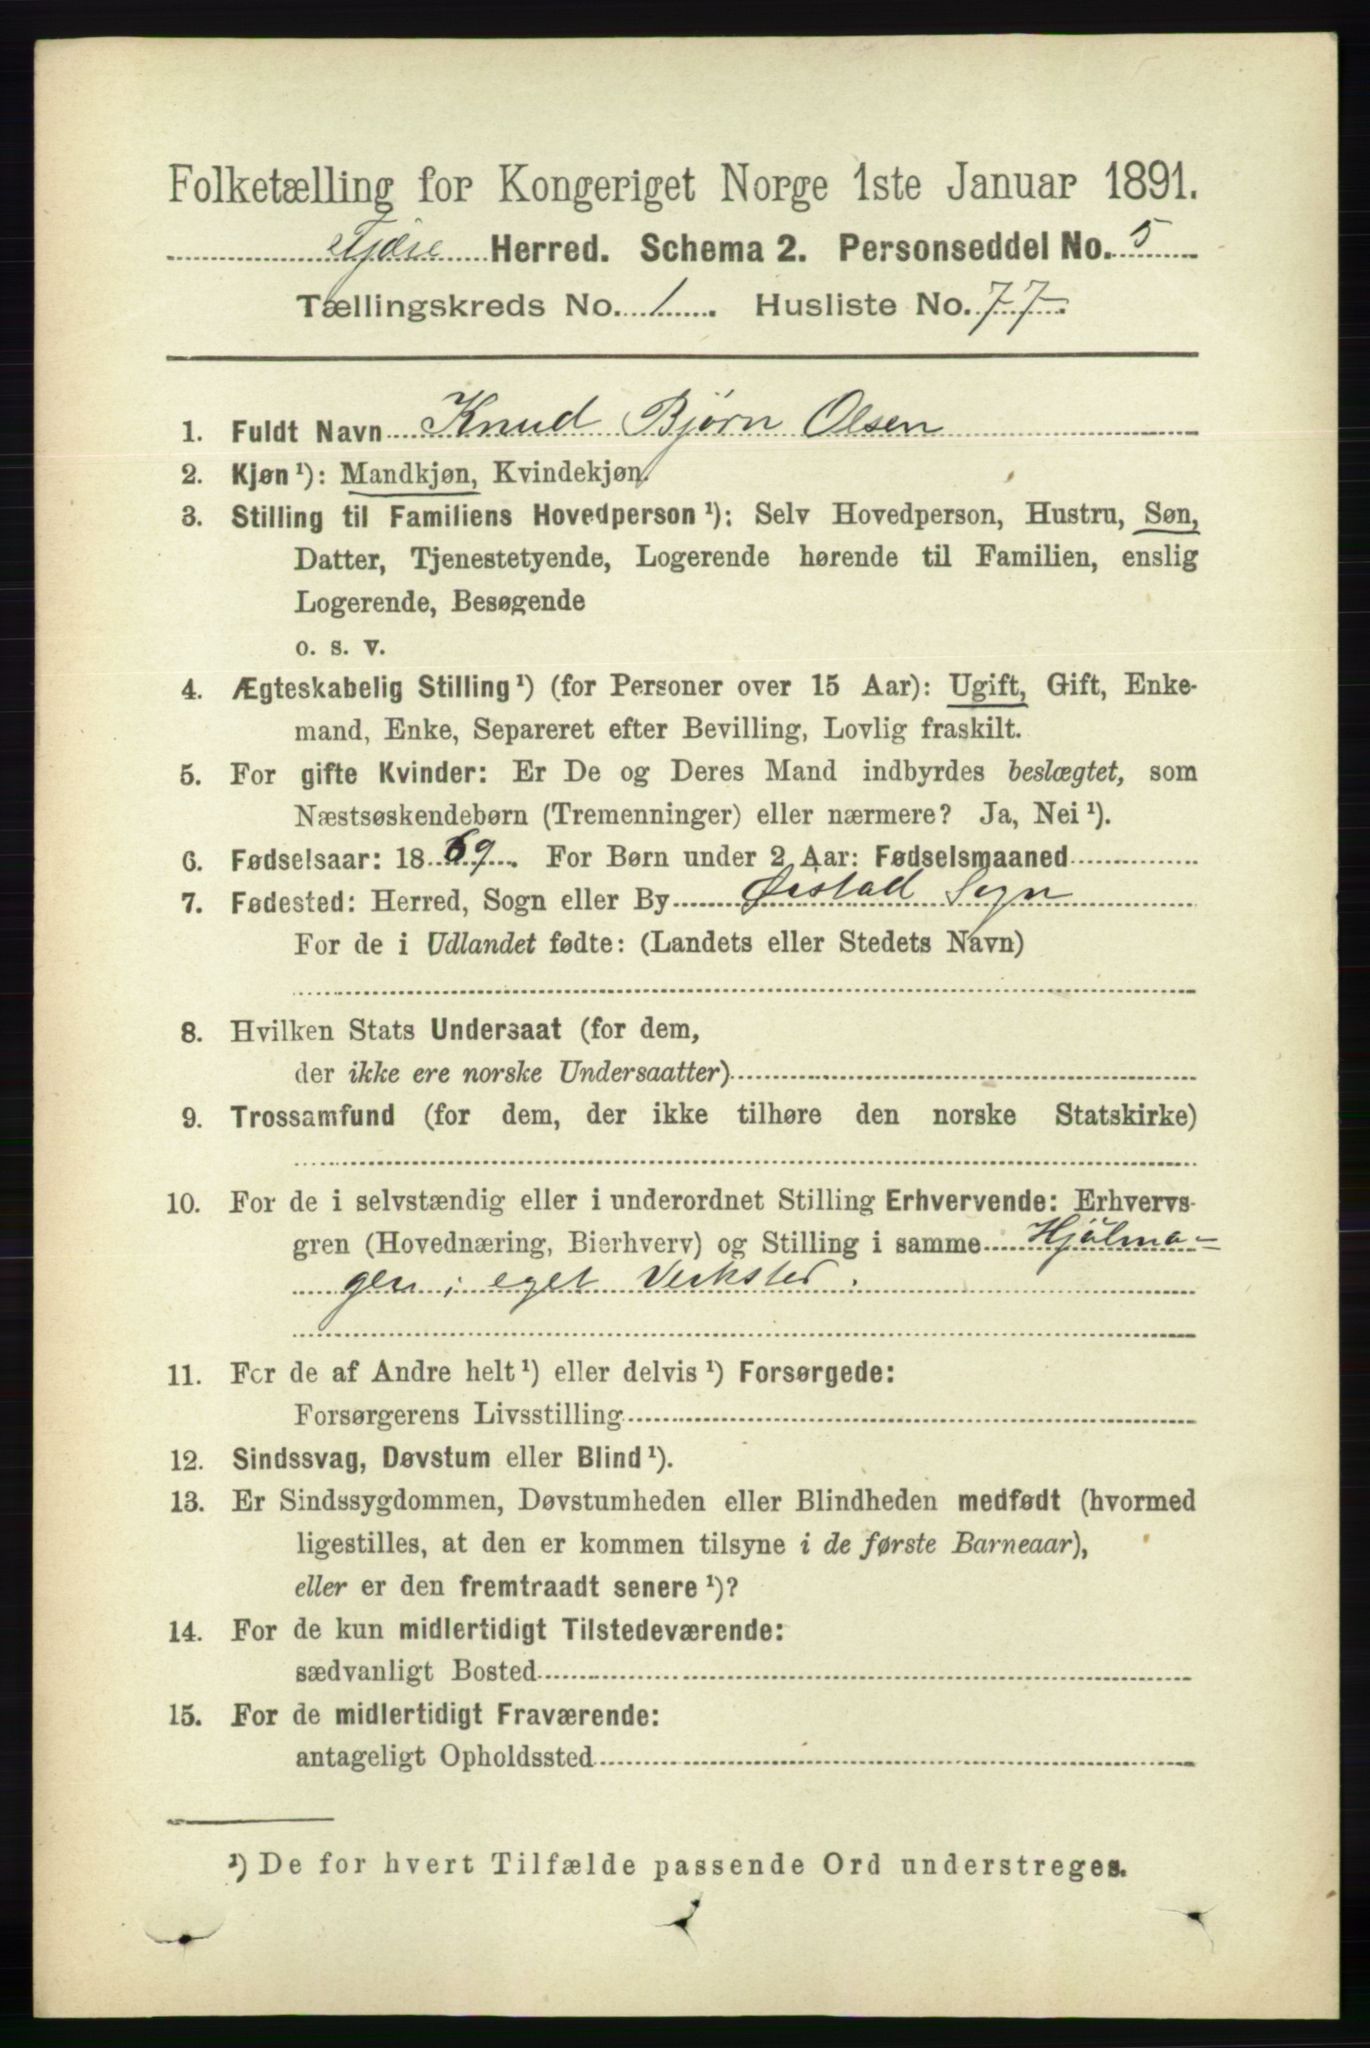 Folketælling for Kongeriget Norge 1ste Januar 1891.
Fjære Herred. Schema 2. Personseddel No. 5
Tællingskreds No. 1. Husliste No. 77.
1. Fuldt Navn Knud Bjørn Olsen
2. Kjøn ¹): Mandkjøn, Kvindekjøn.
3. Stilling til Familiens Hovedperson ¹): Selv Hovedperson, Hustru, Søn,
Datter, Tjenestetyende, Logerende hørende til Familien, enslig
Logerende, Besøgende
o. s. v.
4. Ægteskabelig Stilling ¹) (for Personer over 15 Aar): Ugift, Gift, Enke-
mand, Enke, Separeret efter Bevilling, Lovlig fraskilt.
5. For gifte Kvinder: Er De og Deres Mand indbyrdes beslægtet, som
Næstsøskendebørn (Tremenninger) eller nærmere? Ja, Nei ¹).
6. Fødselsaar: 1869. For Børn under 2 Aar: Fødselsmaaned
7. Fødested: Herred, Sogn eller By Øistad Sogn
For de i Udlandet fødte: (Landets eller Stedets Navn)
8. Hvilken Stats Undersaat (for dem,
der ikke ere norske Undersaatter)
9. Trossamfund (for dem, der ikke tilhøre den norske Statskirke)
10. For de i selvstændig eller i underordnet Stilling Erhvervende: Erhvervs-
gren (Hovednæring, Bierhverv) og Stilling i samme Hjülma-
ger i eget Verksted.
11. For de af Andre helt ¹) eller delvis ¹) Forsørgede:
Forsørgerens Livsstilling
12. Sindssvag, Døvstum eller Blind ¹).
13. Er Sindssygdommen, Døvstumheden eller Blindheden medfødt (hvormed
ligestilles, at den er kommen tilsyne i de første Barneaar),
eller er den fremtraadt senere ¹)?
14. For de kun midlertidigt Tilstedeværende:
sædvanligt Bosted
15. For de midlertidigt Fraværende:
antageligt Opholdssted
¹) De for hvert Tilfælde passende Ord understreges.